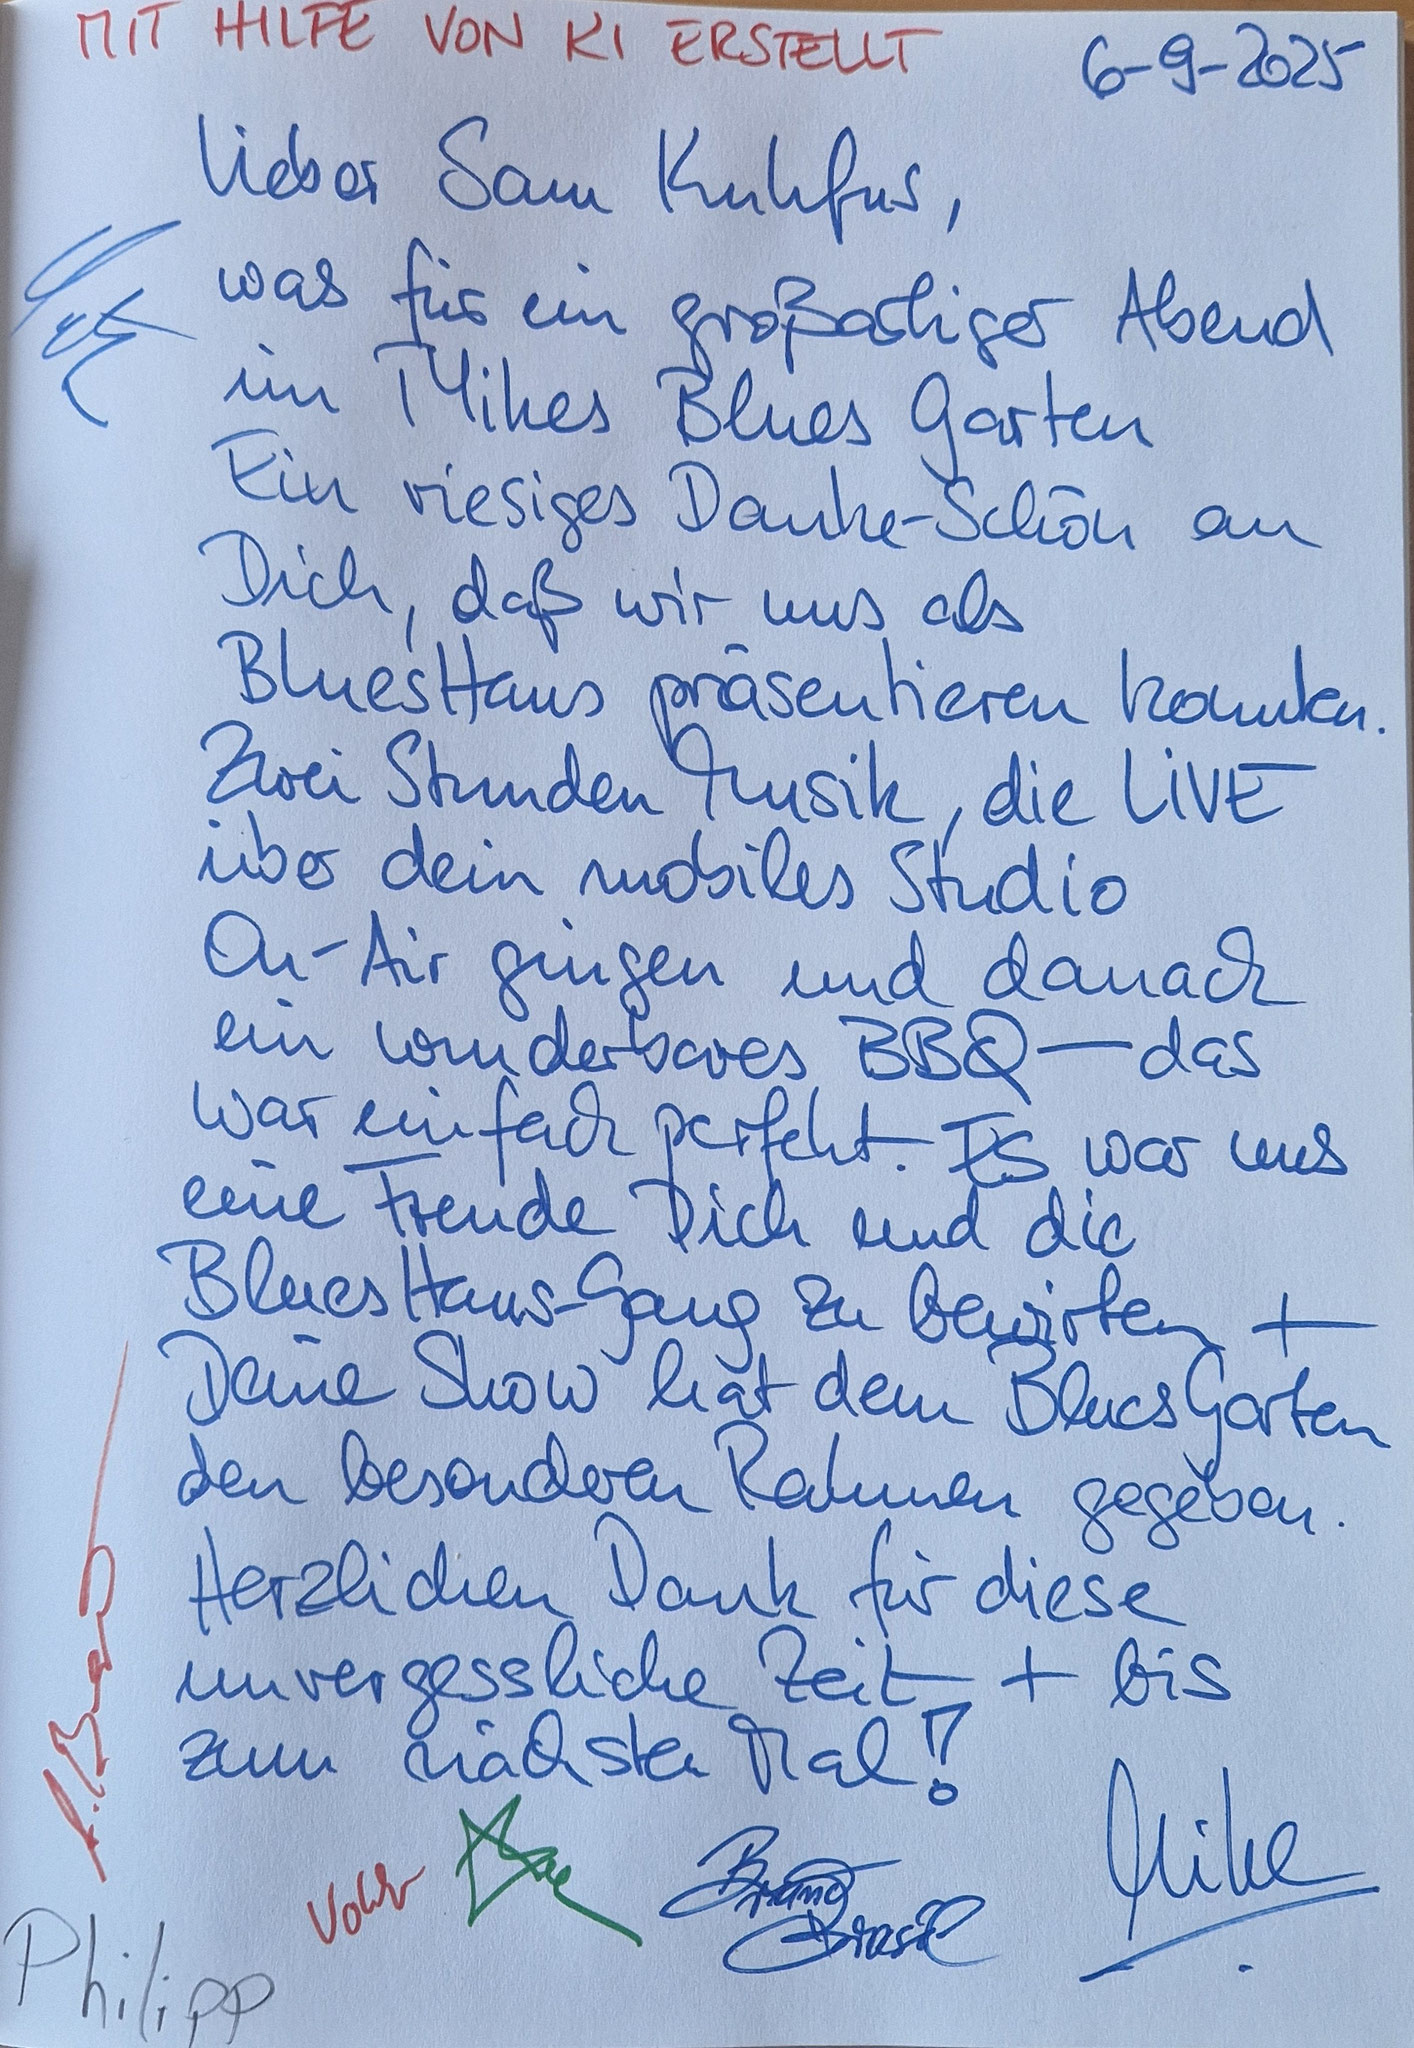 MIT HILFE VON KI ERSTELLT
6-9-2025
Lieber Sam Kuhfus,
was für ein großartiger Abend
im Mikes Blues Garten
Ein riesiges Danke-Schön an
Dich, daß wir uns als
BluesHaus präsentieren konnten.
Zwei Stunden Musik, die LiVE
über dein mobiles Studio
On-Air gingen und danach
ein wunderbares BBQ — das
war einfach perfekt. ES war uns
eine Freude Dich und die
BluesHaus-Gang zu bewirten +
Deine Show hat dem BluesGarten
den besonderen Rahmen gegeben.
Herzlichen Dank für diese
unvergessliche Zeit + bis
zum nächsten Mal!
Mike
Bruno
Brasil
Philipp